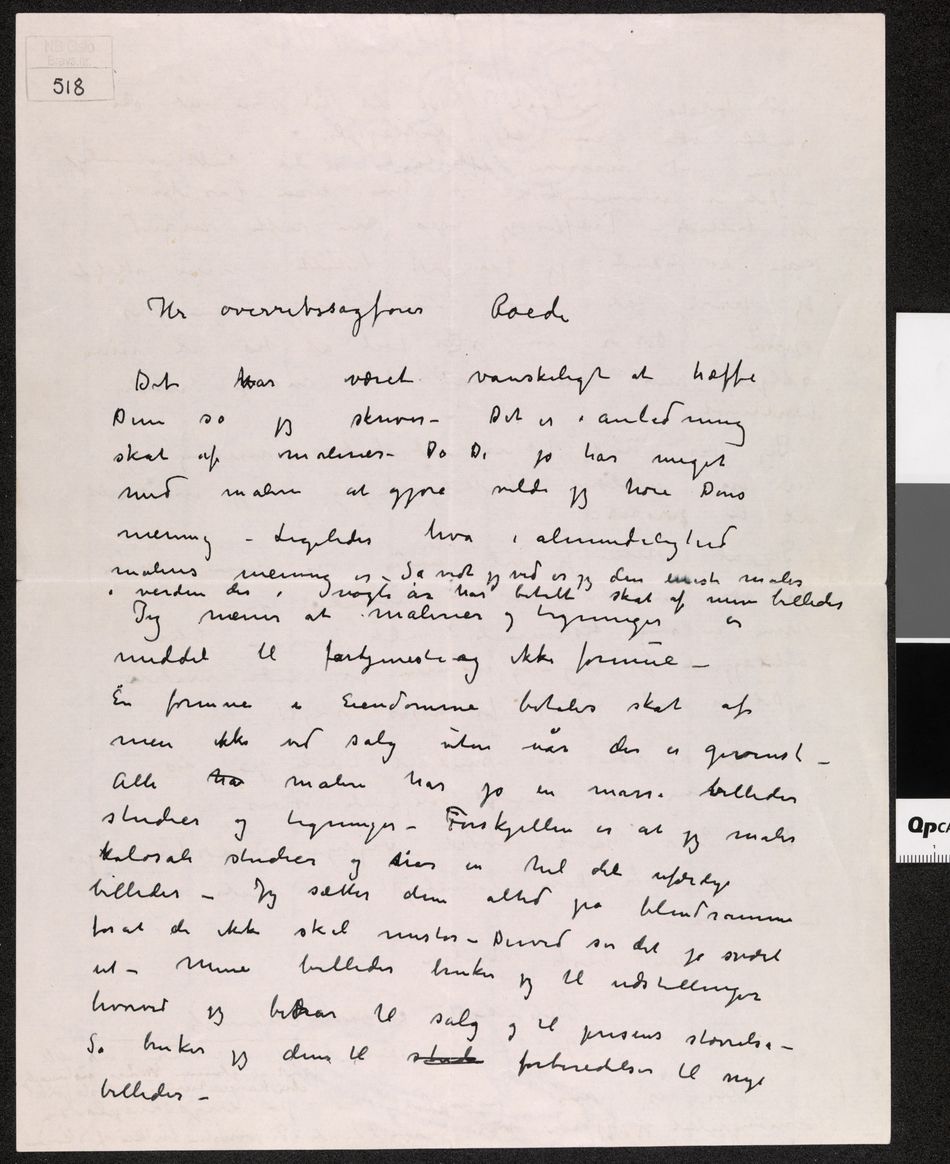 NB Oslo
Brevs.nr.
518
Hr overretssagfører Roede
Det har været vanskeligt at træffe
Dem så jeg skriver – Det er i anledning
skat af malerier – Da De jo har meget
med malere at gjøre vilde jeg høre Deres
mening – Ligeledes hva i almindelighed
maleres mening er – Så vidt jeg ved er jeg den eneste maler
i verden der i nogle år har betalt skat af mine billeder
Jeg mener at malerier og tegninger er
middel til fortjeneste og ikke formue –
En formue i Eiendomme betales skat af
men ikke ved salg uten når der er gevinst –
Alle ha malere har jo en masse billeder
studier og tegninger – Forskjellen er at jeg maler
kolosale studier og har en hel del uferdige
billeder – Jeg sætter dem altid på blendramme
forat de ikke skal mistes – Derved ser det jo svært
ut – Mine billeder bruker jeg til udstillinger
hvorved jeg bidrar til salg og til prisens størrelse –
Så bruker jeg dem til forberedelser til nye
billeder –
QpCA